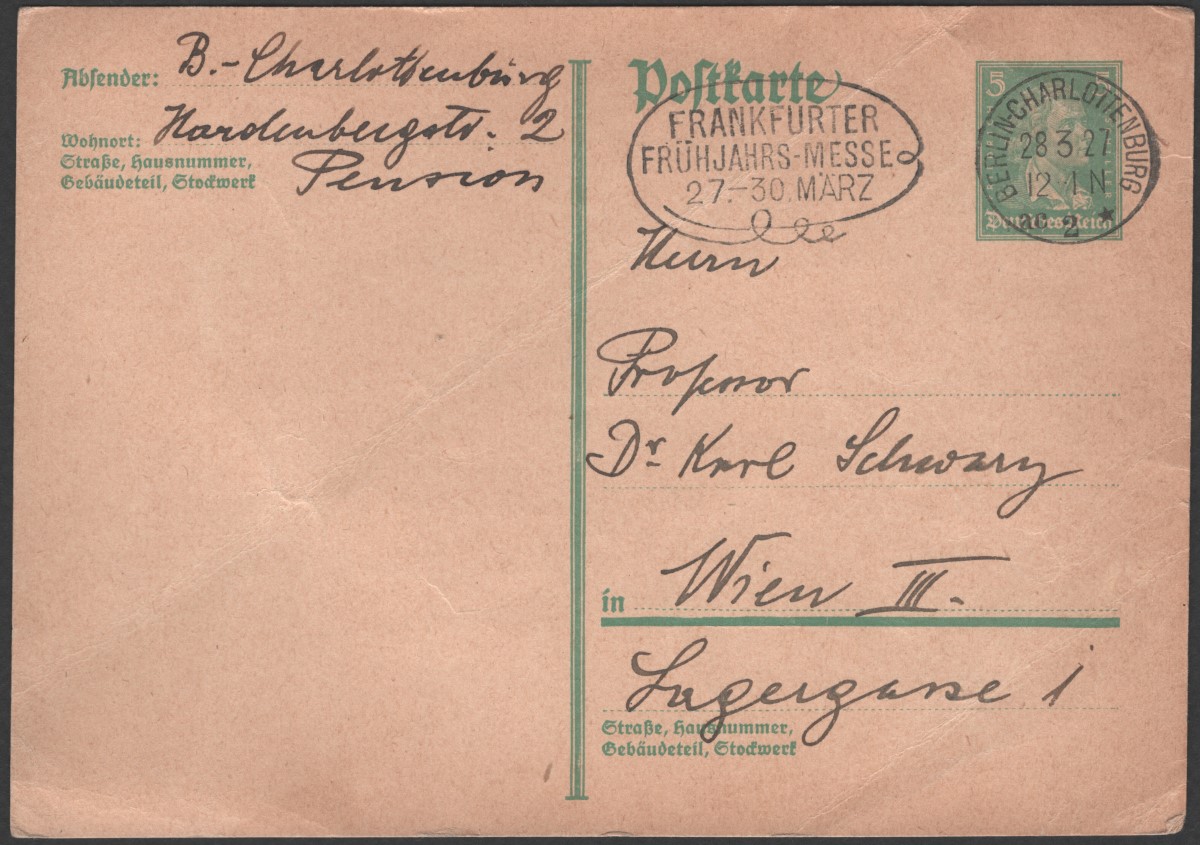 Absender: B.-Charlottenburg
Wohnort: Hardenbergstr. 2
Straße, Hausnummer,
Gebäudeteil, Stockwerk
Pension
Postkarte
FRANKFURTER
FRÜHJAHRS-MESSE
27.-30. MÄRZ
5 5
BERLIN-CHARLOTTENBURG
28.3.27
12-1 N
2
Deutsches Reich
Herrn
Professor
Dr. Karl Schwarz
in Wien III.
Lagergasse 1
Straße, Hausnummer,
Gebäudeteil, Stockwerk